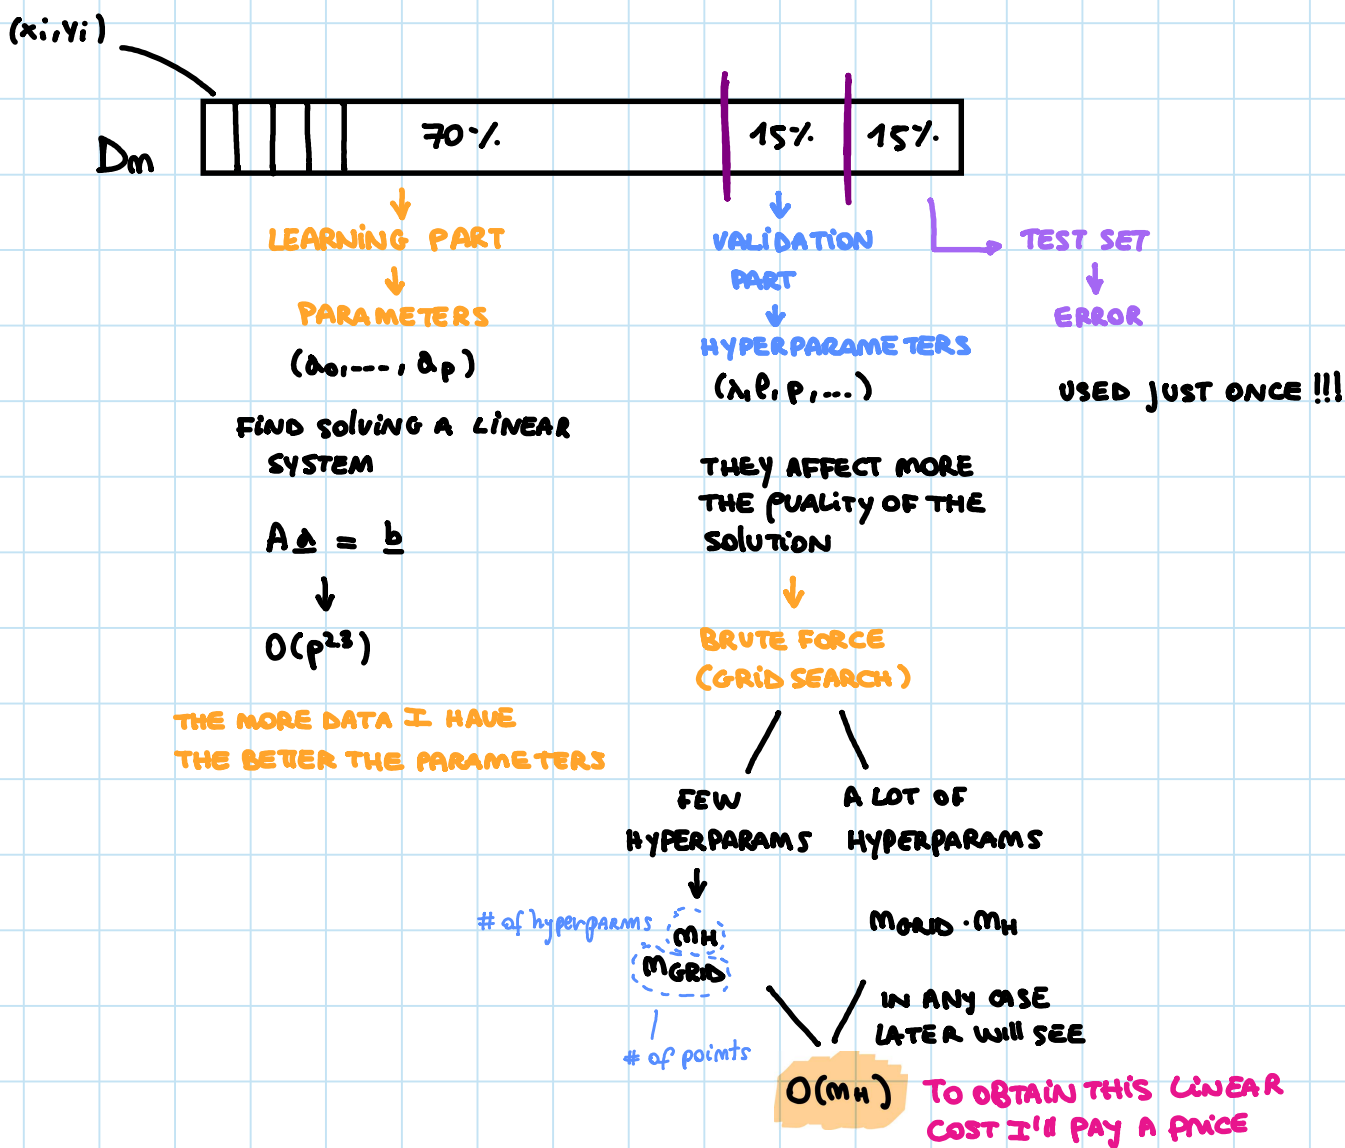 (xi,yi)
Dm
70%
15%
15%
LEARNING PART
PARAMETERS
(a0,...., ap)
FIND SOLVING A LINEAR
SYSTEM
A a = b
O(p^23)
THE MORE DATA I HAVE
THE BETTER THE PARAMETERS
VALIDATION
PART
HYPERPARAMETERS
(λ, l, p, ...)
THEY AFFECT MORE
THE QUALITY OF THE
SOLUTION
BRUTE FORCE
(GRID SEARCH)
TEST SET
ERROR
USED JUST ONCE !!!
FEW
HYPERPARAMS
A LOT OF
HYPERPARAMS
# of hyperparms
mH
mGRID
# of points
mGRID · mH
IN ANY CASE
LATER Will SEE
O(mH)
TO OBTAIN THIS LINEAR
COST I'll PAY A PRICE